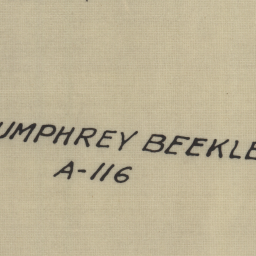 UMPHREY BEEKLE
A-116